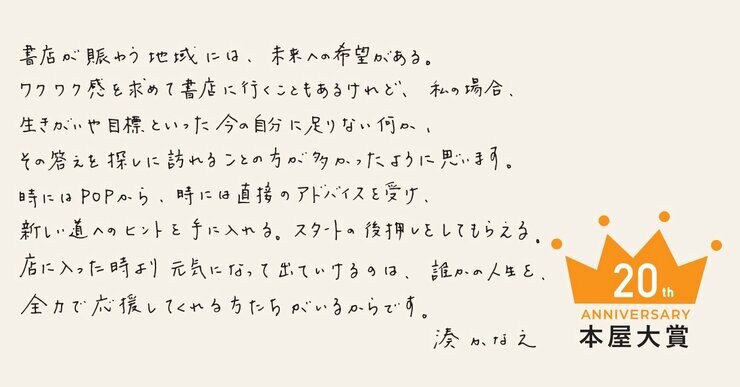 書店が賑わう地域には、未来への希望がある。
ワクワク感を求めて書店に行くこともあるけれど、私の場合、
生きがいや目標といった今の自分に足りない何か、
その答えを探しに訪れることの方が多かったように思います。
時にはPOPから、時には直接のアドバイスを受け、
新しい道へのヒントを手に入れる。スタートの後押しをしてもらえる。
店に入った時より元気になって出ていけるのは、誰かの人生を、
全力で応援してくれる方たちがいるからです。
湊かなえ
20th
ANNIVERSARY
本屋大賞